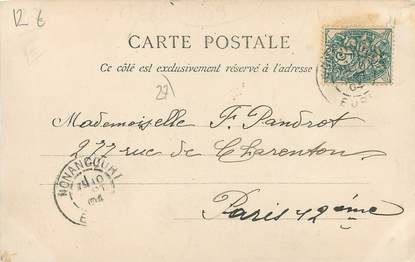 12 €
CARTE POSTALE
Ce côté est exclusivement réservé à l'adresse
27
Mademoiselle F. Pandrot
277 rue de Charenton
Paris 12ème
NONANCOURT